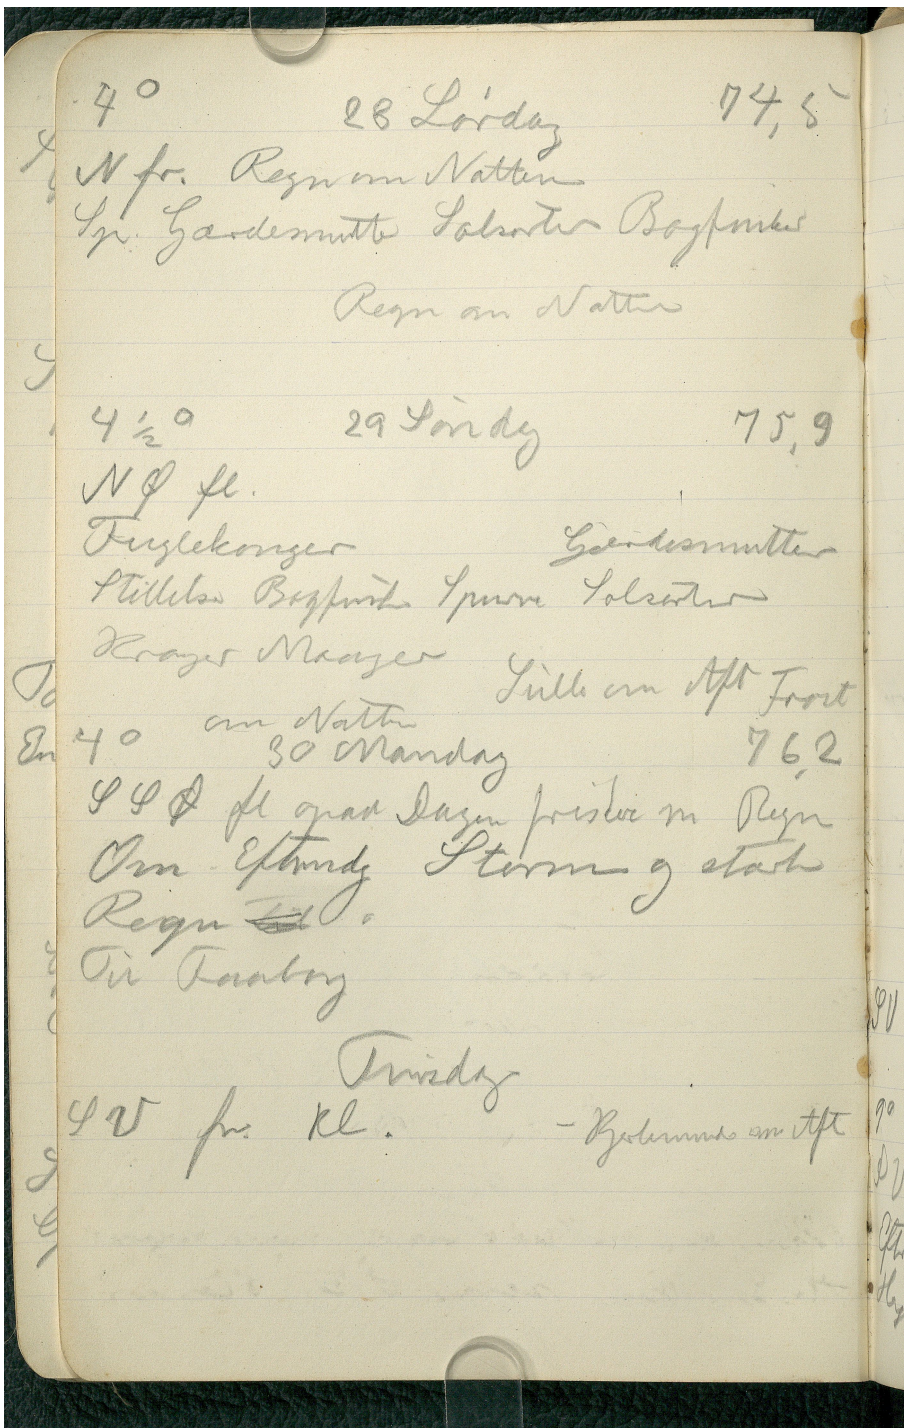 4° 28 Lørdag 74,5
N fr. Regn om Natten
Sp. Gærdesmutte Solsorter Bogfinker
Regn om Natten
4 ½° 29 Søndag 75,9
N Ø fl.
Fuglekonger Gærdesmutter
Stillelse Bogfink Spurve Solsorter
Krager Maager
Stille om Aft Frost
om Natten
4° 30 Mandag 76,2
S S Ø fl opad Dagen frisker m Regn
Om Eftmdg Storm og stærk
Regn
Til Faaborg
Tirsdag
S V fr. Kl. - Kjerteminde om Aft